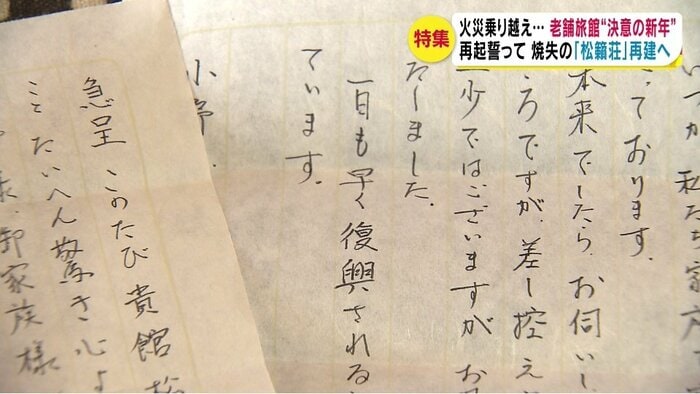 特集
火災乗り越え… 老舗旅館“決意の新年”
再起誓って 焼失の「松籟荘」再建へ
いつか 私たち家方
っております。
本来でしたら、お伺いし
ころですが、差し控え
少ではございますが お
たしました。
一日も早く復興される
ています。
小野
急呈 このたび貴館
ことたいへん驚き心よ
様、御家族様